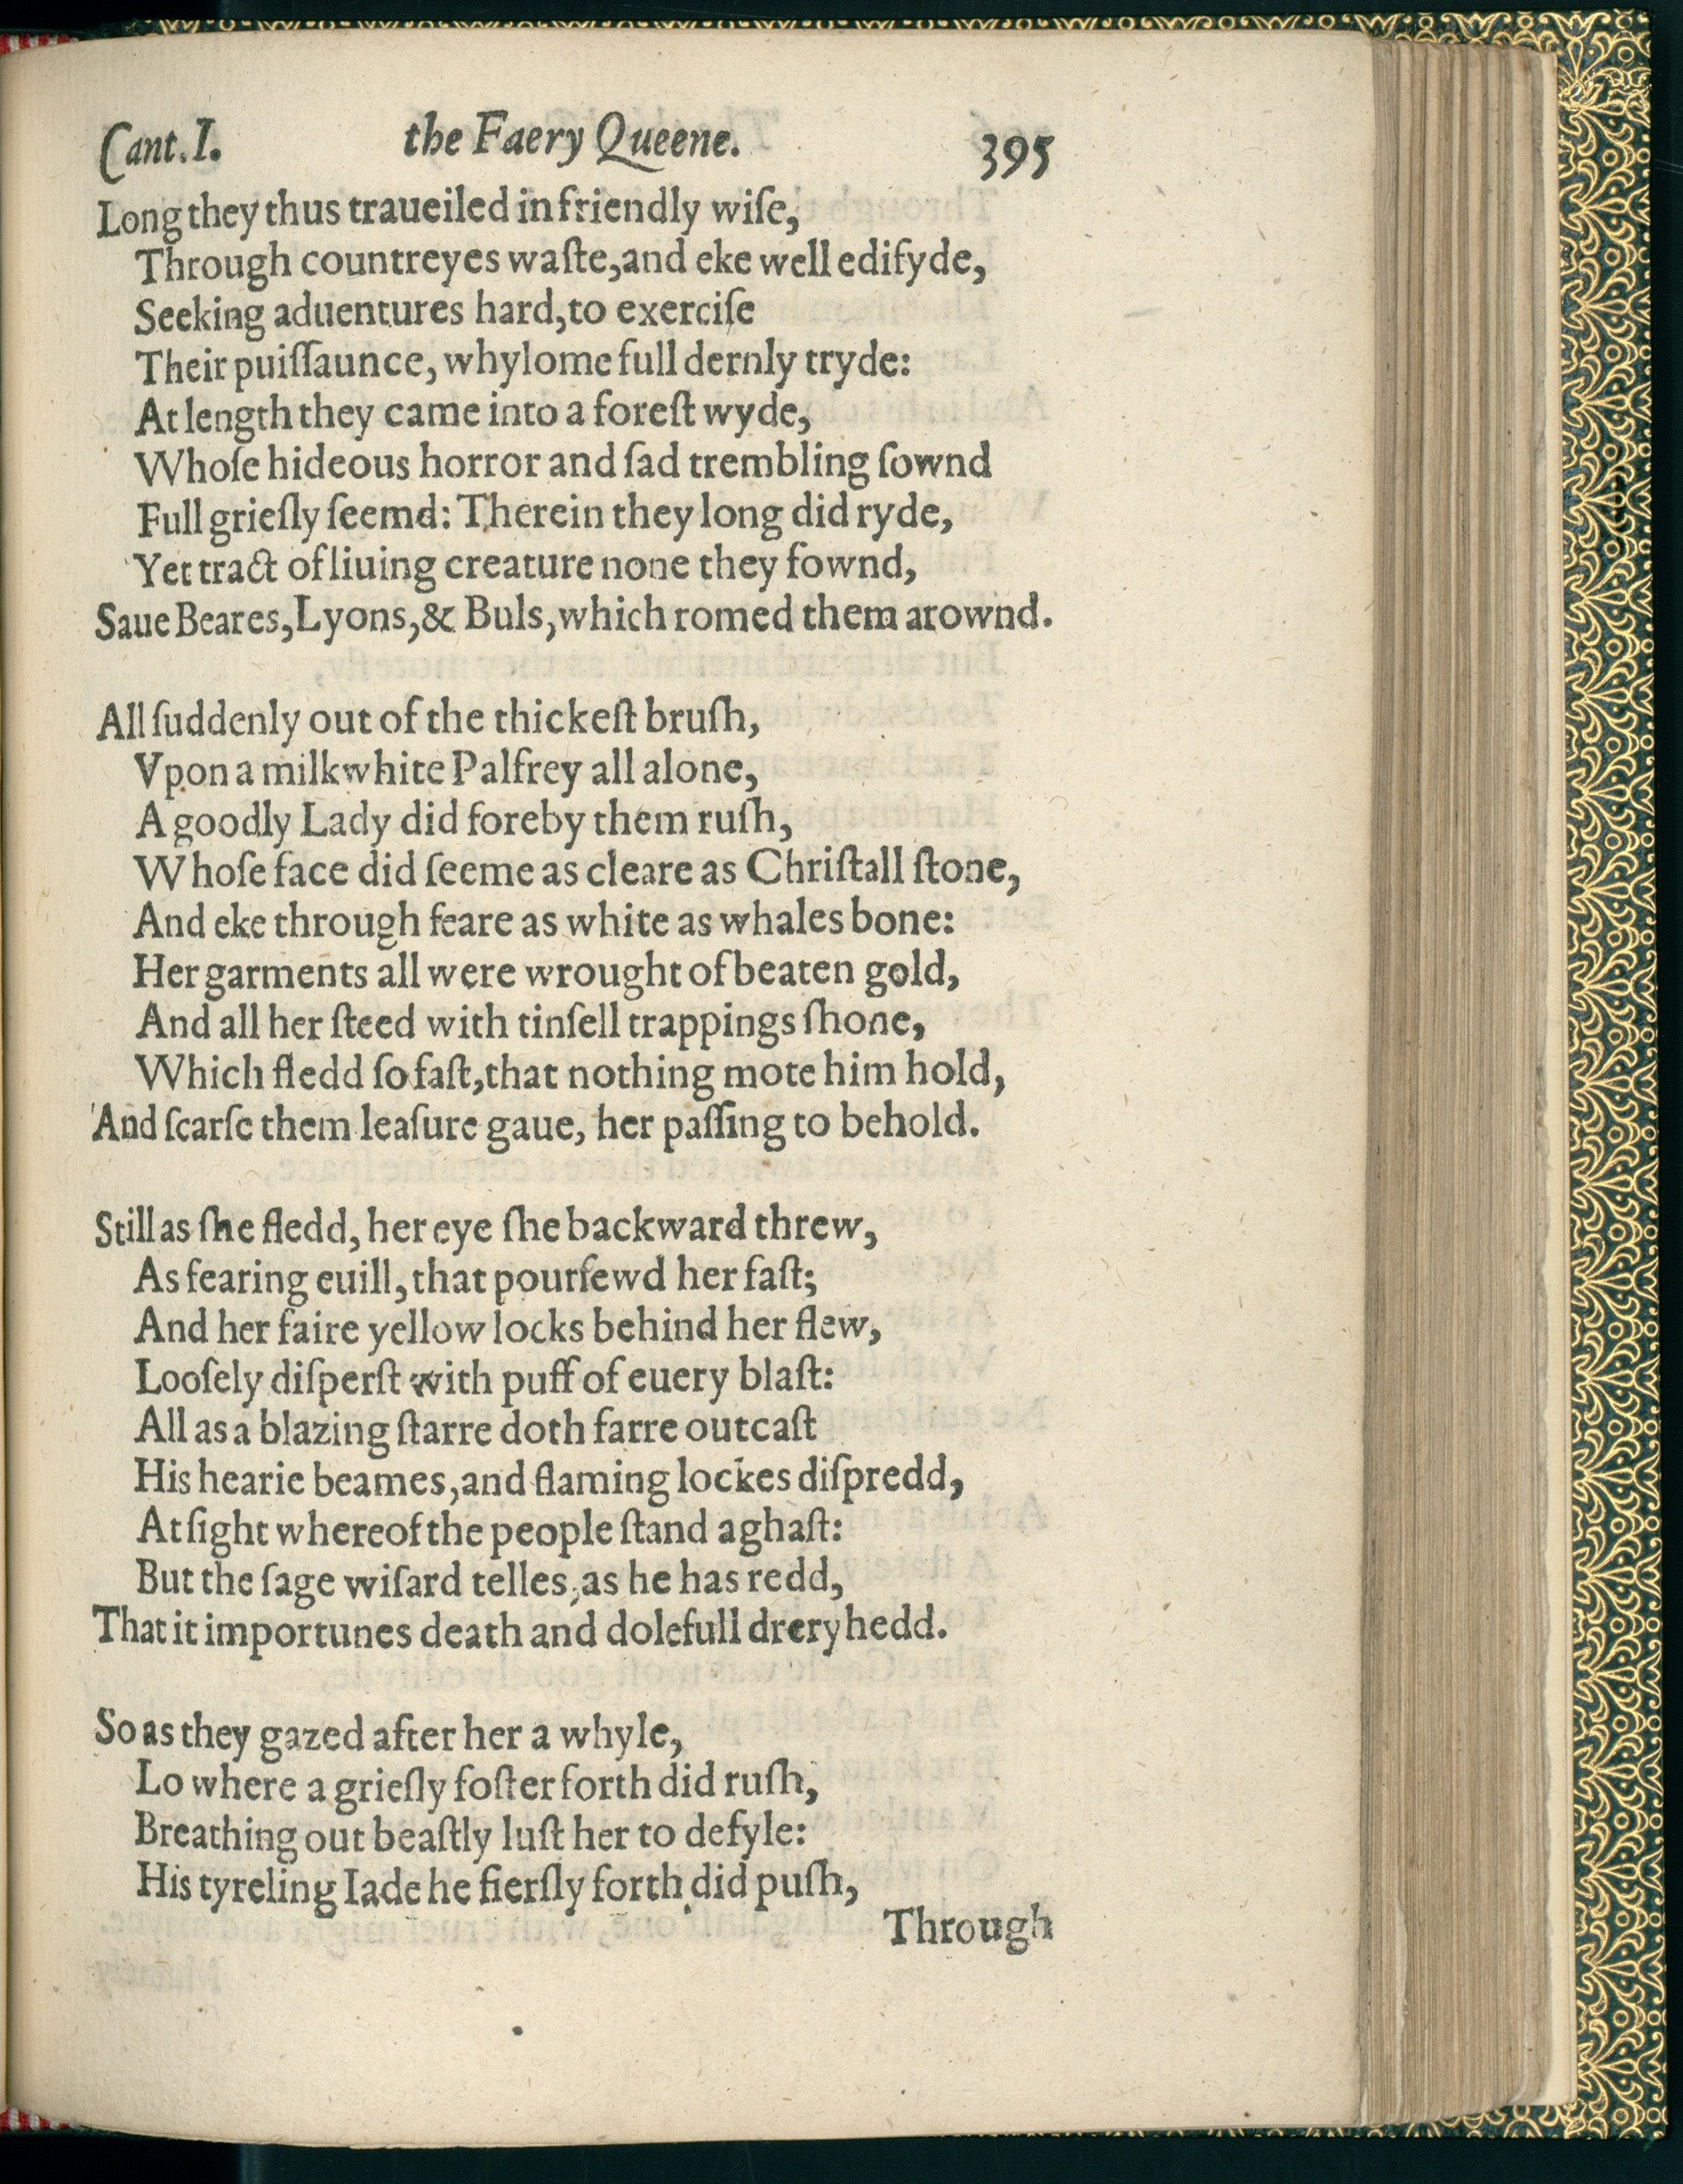 Cant. I. the Faery Queene. 395
Long they thus traueiled in friendly wiſe,
Through countreyes waſte, and eke well edifyde,
Seeking aduentures hard, to exerciſe
Their puiſſaunce, whylome full dernly tryde:
At length they came into a foreſt wyde,
Whoſe hideous horror and ſad trembling ſownd
Full grieſly ſeemd: Therein they long did ryde,
Yet tract of liuing creature none they fownd,
Saue Beares, Lyons, & Buls, which romed them arownd.
All ſuddenly out of the thickeſt bruſh,
Vpon a milkwhite Palfrey all alone,
A goodly Lady did foreby them ruſh,
Whoſe face did ſeeme as cleare as Chriſtall ſtone,
And eke through feare as white as whales bone:
Her garments all were wrought of beaten gold,
And all her ſteed with tinſell trappings ſhone,
Which fledd ſo faſt, that nothing mote him hold,
And ſcarſe them leaſure gaue, her paſſing to behold.
Still as ſhe fledd, her eye ſhe backward threw,
As fearing euill, that pourſewd her faſt;
And her faire yellow locks behind her flew,
Looſely diſperſt with puff of euery blaſt:
All as a blazing ſtarre doth farre outcaſt
His hearie beames, and flaming lockes diſpredd,
At ſight whereof the people ſtand aghaſt:
But the ſage wiſard telles, as he has redd,
That it importunes death and dolefull dreryhedd.
So as they gazed after her a whyle,
Lo where a grieſly foſter forth did ruſh,
Breathing out beaſtly luſt her to defyle:
His tyreling Iade he fierſly forth did puſh,
Through